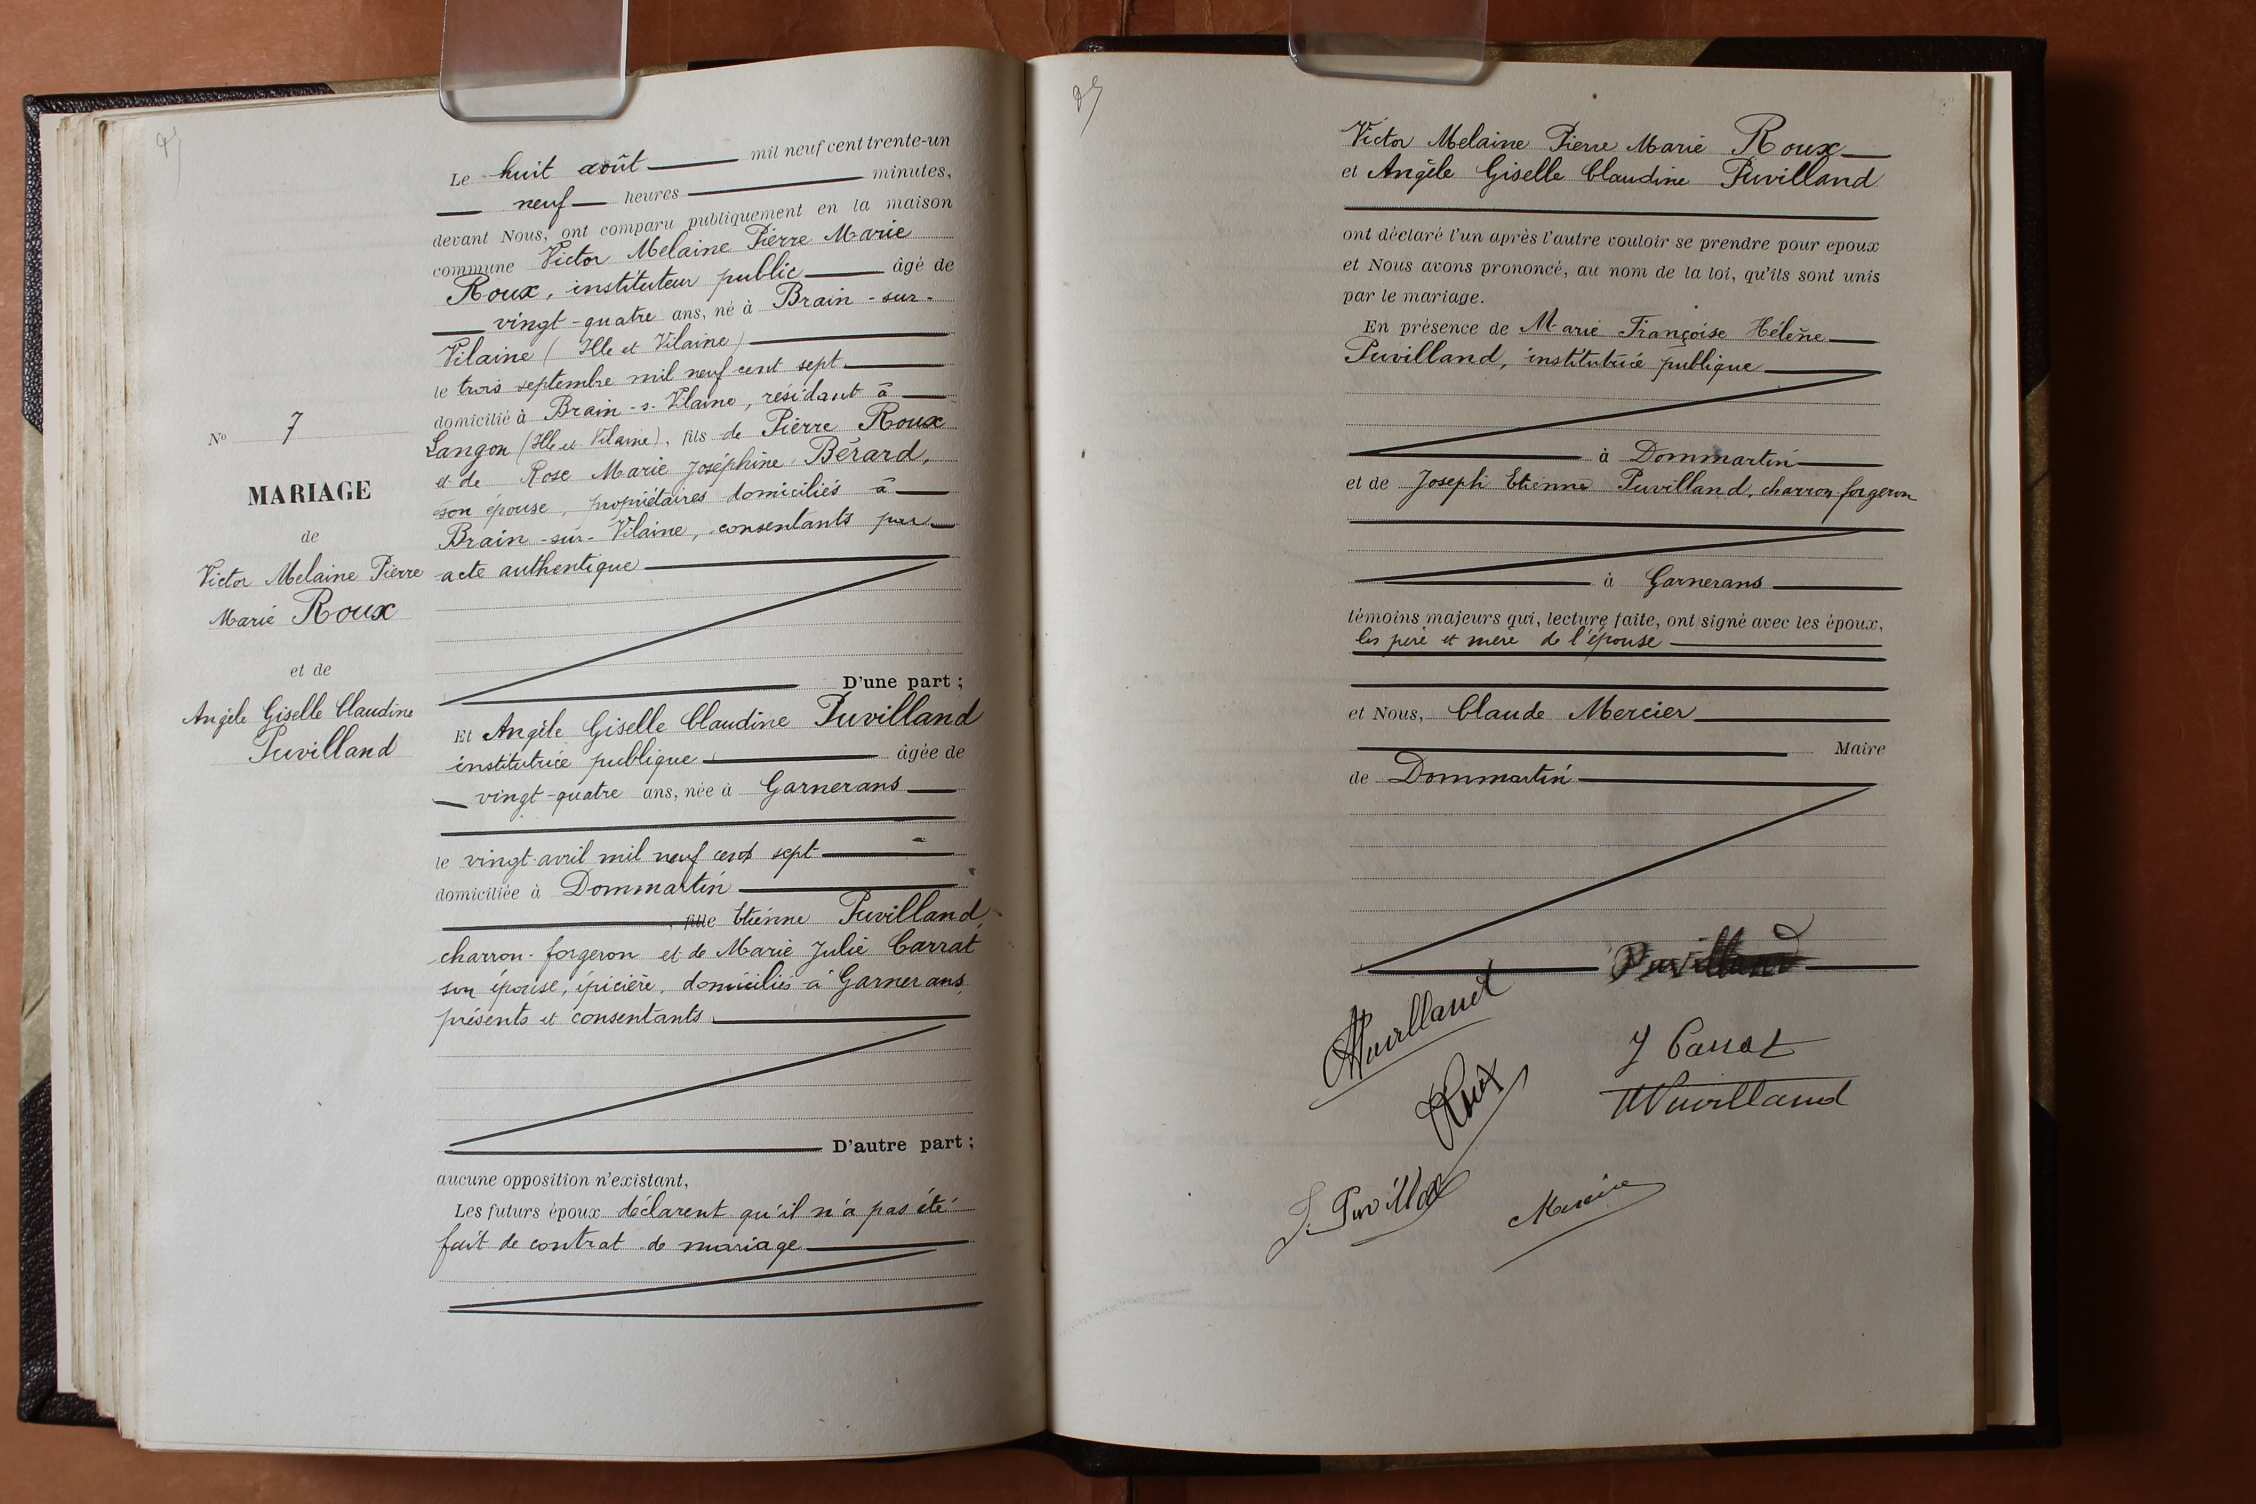 Le huit août mil neuf cent trente-un
neuf heures minutes,
devant Nous, ont comparu publiquement en la maison
commune Victor Melaine Pierre Marie
Roux, instituteur public âgé de
vingt-quatre ans, né à Brain-sur-
Vilaine (Ille et Vilaine)
le trois septembre mil neuf cent sept
domicilié à Brain-s-Vilaine, résidant à
Langon (Ille et Vilaine), fils de Pierre Roux
et de Rose Marie Joséphine Bérard,
son épouse, propriétaires domiciliés à
Brain-sur-Vilaine, consentants par
acte authentique
D'une part ;
N° 7
MARIAGE
de
Victor Melaine Pierre
Marie Roux
et de
Angèle Giselle Claudine
Puvilland
Et Angèle Giselle Claudine Puvilland
institutrice publique âgée de
vingt-quatre ans, née à Garnerans
le vingt avril mil neuf cent sept
domiciliée à Dommartin
fille Etienne Puvilland,
charron-forgeron et de Marie Julie Carrat
son épouse, épicière, domiciliés à Garnerans,
présents et consentants
D'autre part ;
aucune opposition n'existant,
Les futurs époux déclarent qu'il n'a pas été
fait de contrat de mariage
Victor Melaine Pierre Marie Roux
et Angèle Giselle Claudine Puvilland
ont déclaré l'un après l'autre vouloir se prendre pour epoux
et Nous avons prononcé, au nom de la loi, qu'ils sont unis
par le mariage.
En présence de Marie Françoise Hélène
Puvilland, institutrice publique
à Dommartin
et de Joseph Etienne Puvilland, charron-forgeron
à Garnerans
témoins majeurs qui, lecture faite, ont signé avec les époux,
les père et mère de l'épouse
et Nous, Claude Mercier
Maire
de Dommartin
Puvilland
APuvilland
J Carrat
Roux
HPuvilland
J. Puvilland
Mercier